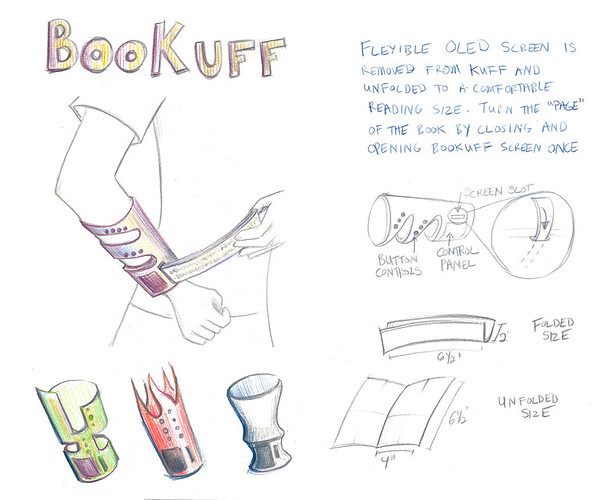 BOOKUFF
FLEXIBLE OLED SCREEN IS
REMOVED FROM KUFF AND
UNFOLDED TO A COMFORTABLE
READING SIZE. TURN THE "PAGE"
OF THE BOOK BY CLOSING AND
OPENING BOOKUFF SCREEN ONCE
SCREEN SLOT
BUTTON
CONTROLS
CONTROL
PANEL
2"
6 1/2"
FOLDED
SIZE
6 1/2"
4"
UNFOLDED
SIZE